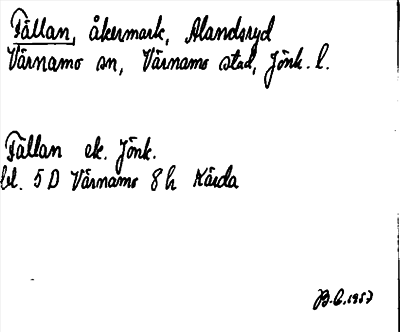 Tällan, åkermark, Alandsryd
Värnamo sn, Värnamo stad, Jönk. l.
Tällan ek. Jönk.
bl. 5 D Värnamo 8 h Kärda
B.C. 1957